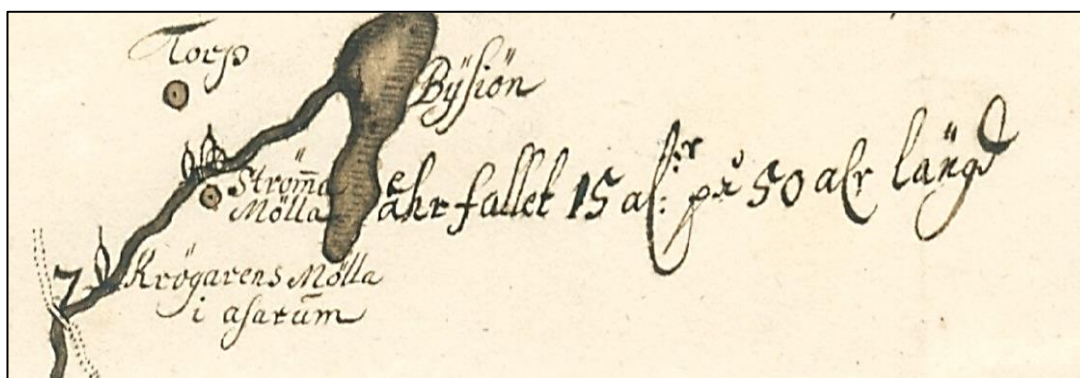 Torp
Bÿsiön
Strom̄a
Mölla
ahr fallet 15 al:r på 50 alr längd
7
Krögarens Mölla
i asarum